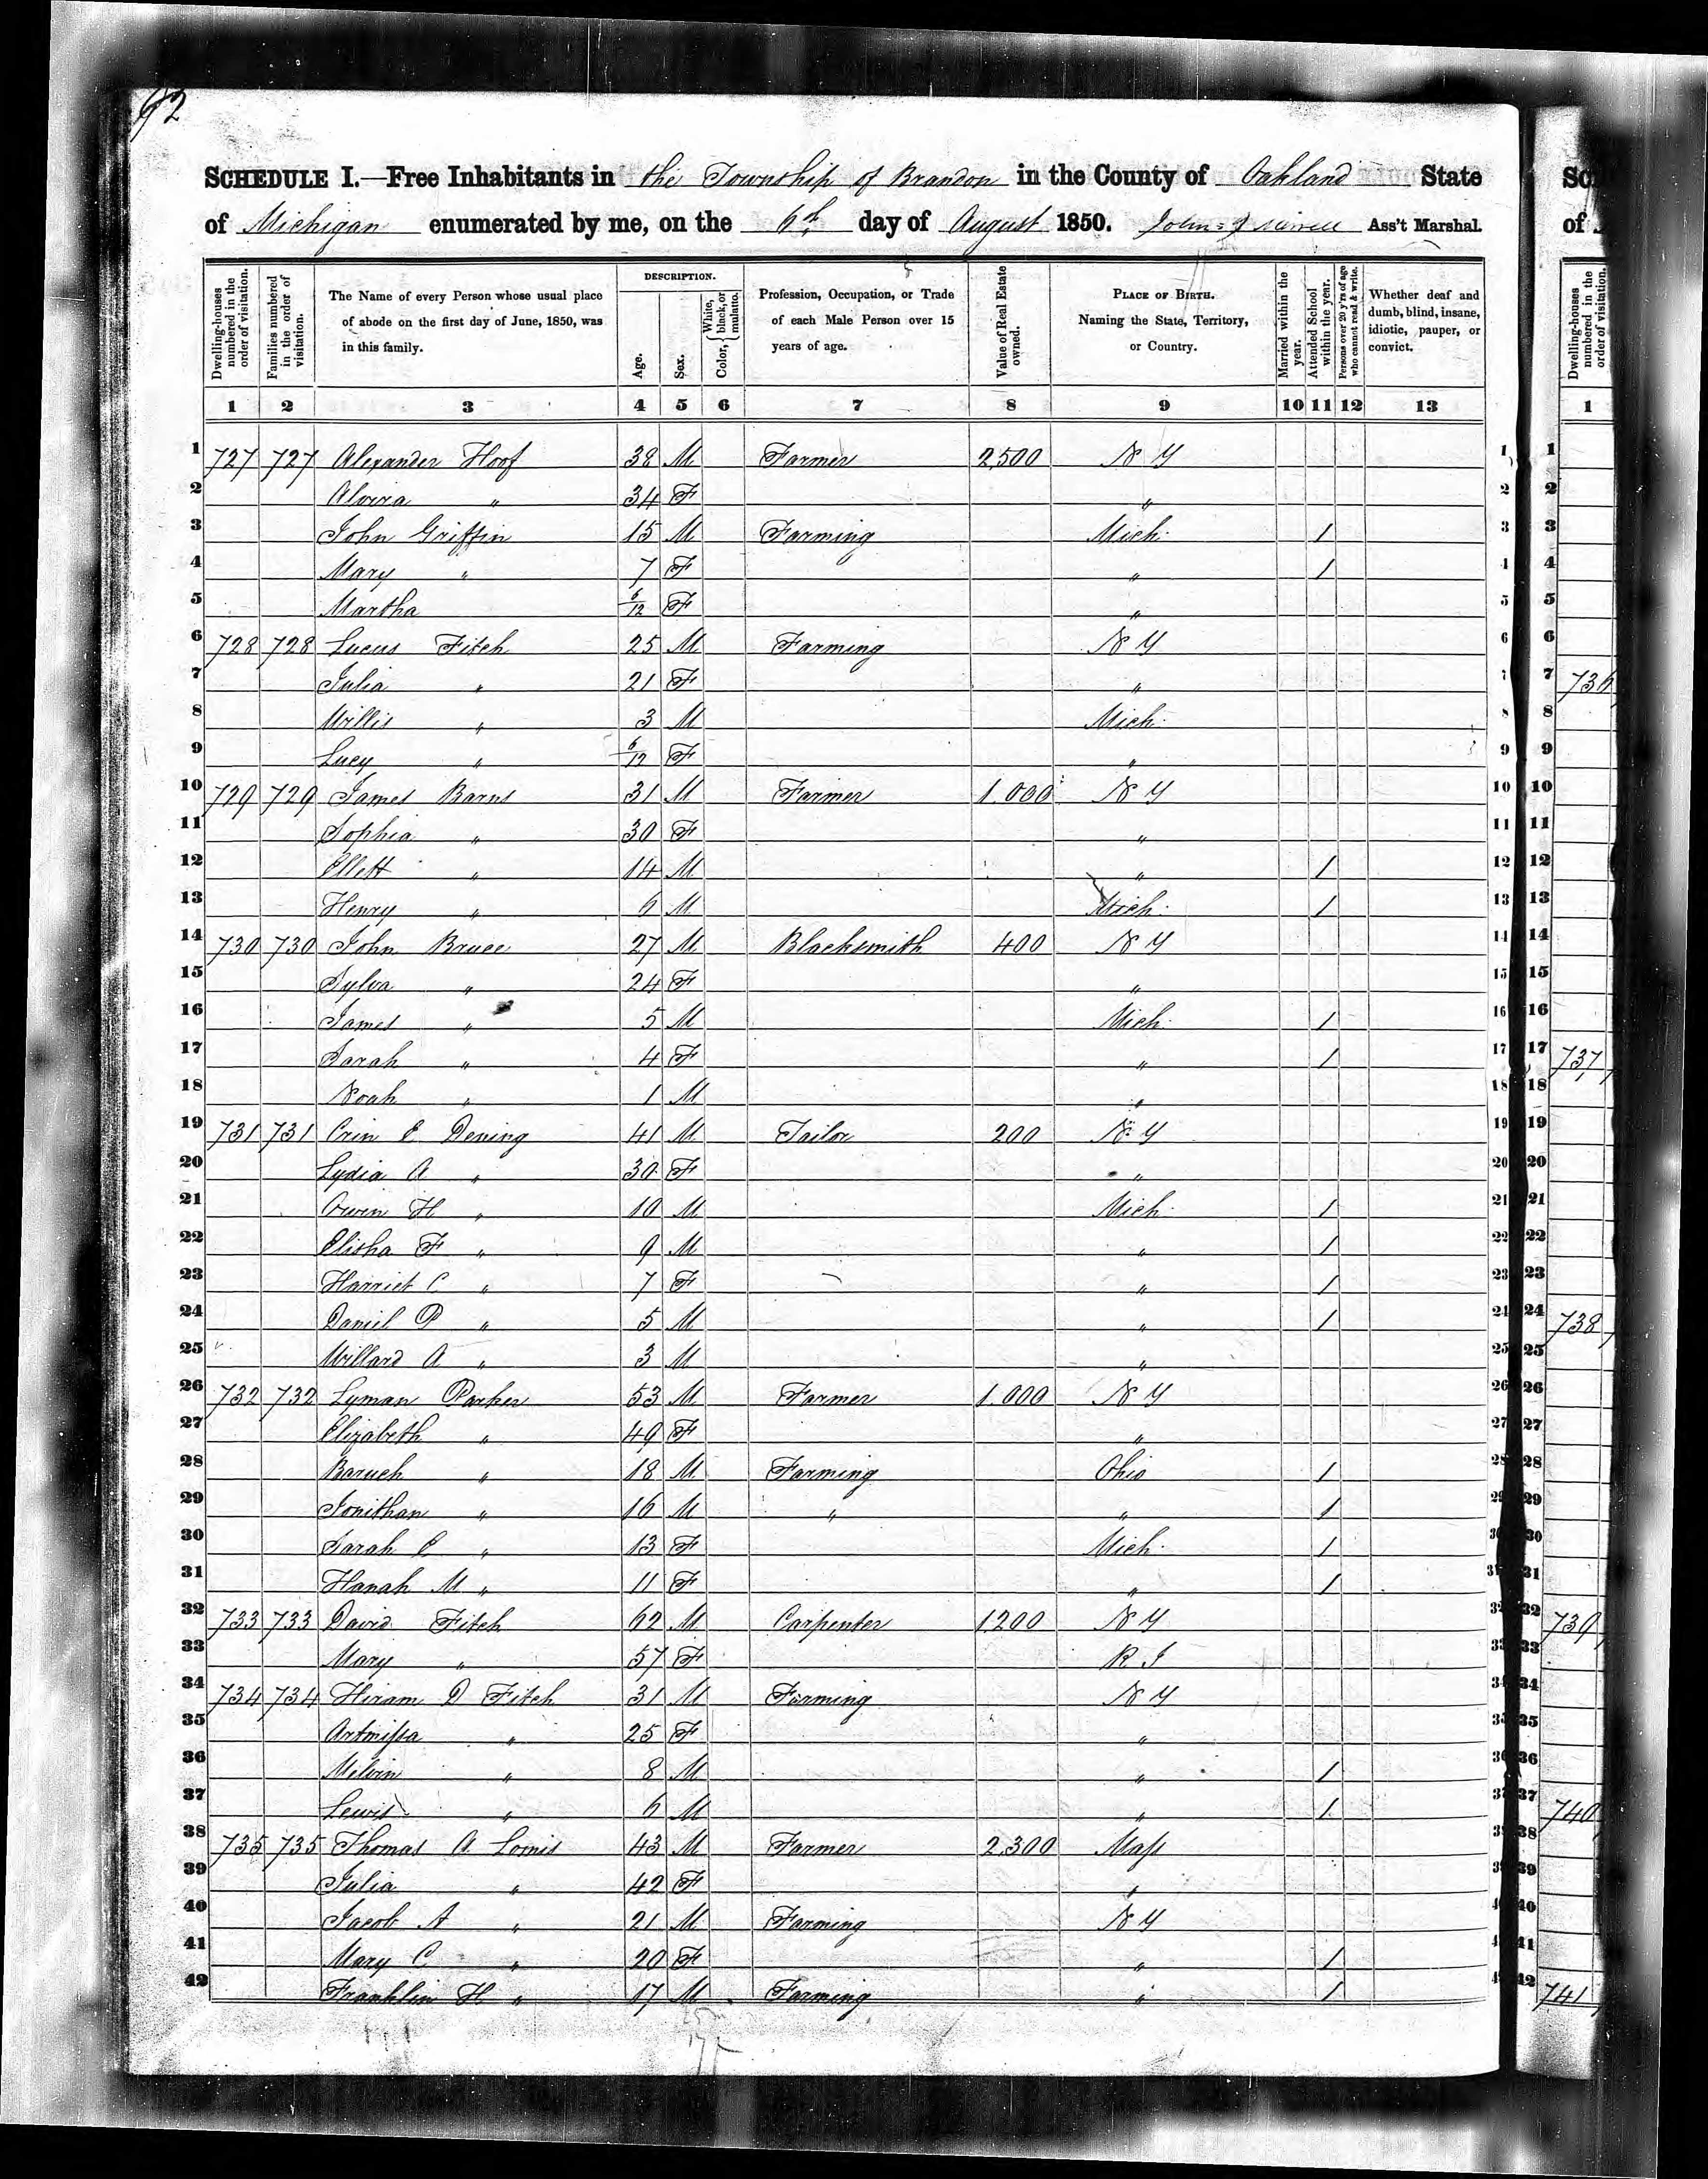 92
SCHEDULE I.—Free Inhabitants in the Township of Brandon in the County of Oakland State
of Michigan enumerated by me, on the 6th day of August 1850. John Ass't Marshal.
Dwelling-houses numbered in the order of visitation.
Families numbered in the order of visitation.
The Name of every Person whose usual place of abode on the first day of June, 1850, was in this family.
DESCRIPTION.
Age.
Sex.
Color, { White, black, or mulatto.
Profession, Occupation, or Trade of each Male Person over 15 years of age.
Value of Real Estate owned.
PLACE OF BIRTH. Naming the State, Territory, or Country.
Married within the year.
Attended School within the year.
Persons over 20 y'rs of age who cannot read & write.
Whether deaf and dumb, blind, insane, idiotic, pauper, or convict.
1 2 3 4 5 6 7 8 9 10 11 12 13
1 727 727 Alexander Hoof 38 M Farmer 2,500 N Y 1
2 " 34 F " 2
3 John Griffin 15 M Farming Mich. 1 3
4 Mary " 7 F " 1 4
5 Martha 6/12 F " 5
6 728 728 Lucus Fitch 25 M Farming N Y 6
7 Julia " 21 F " 7
8 Willis " 3 M Mich. 8
9 Lucy " 6/12 F " 9
10 729 729 James Barns 31 M Farmer 1,000 N Y 10
11 Sophia " 30 F " 11
12 Ellett " 14 M " 1 12
13 Henry " 6 M Mich. 1 13
14 730 730 John Bruce 27 M Blacksmith 400 N Y 14
15 Sylva " 24 F " 15
16 James " 5 M Mich. 1 16
17 Sarah " 4 F " 1 17
18 Noah " 1 M " 18
19 731 731 Orin E Dening 41 M Tailor 200 N Y 19
20 Lydia A " 30 F " 20
21 Orvin H " 10 M Mich. 1 21
22 Elisha F " 9 M " 1 22
23 Harriet C " 7 F " 1 23
24 Daniel P " 5 M " 1 24
25 Millard A " 3 M " 25
26 732 732 Lyman Parker 53 M Farmer 1,000 N Y 26
27 Elizabeth " 49 F " 27
28 Baruch " 18 M Farming Ohio 1 28
29 Jonithan " 16 M " " 1 29
30 Sarah E " 13 F Mich. 1 30
31 Hanah M " 11 F " 1 31
32 733 733 David Fitch 62 M Carpenter 1200 N Y 32
33 Mary " 57 F R I 33
34 734 734 Hiram D Fitch 31 M Farming N Y 34
35 Artmissa " 25 F " 35
36 Melvin " 8 M " 1 36
37 Lewis " 6 M " 1 37
38 735 735 Thomas A Lomis 43 M Farmer 2,300 Mass 38
39 Julia " 42 F " 39
40 Jacob A " 21 M Farming N Y 40
41 Mary C " 20 F " 1 41
42 Franklin H " 17 M Farming " 1 42
Dwelling-houses numbered in the order of visitation.
1
1
2
3
4
5
6
7 736
8
9
10
11
12
13
14
15
16
17 737
18
19
20
21
22
23
24 738
25
26
27
28
29
30
31
32 739
33
34
35
36
37 740
38
39
40
41
42 741